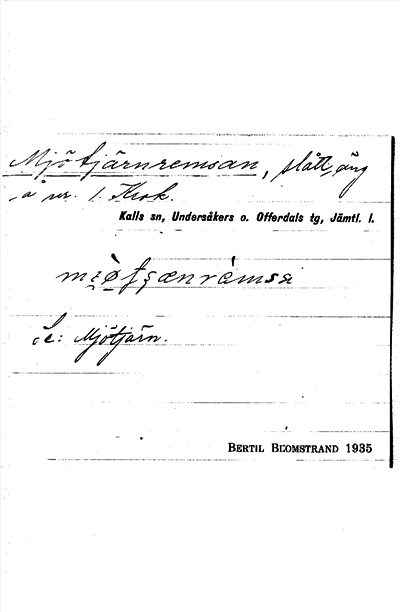 Mjötjärnremsan, slått, äng
å nr. 1. Krok.
Kalls sn, Undersåkers o. Offerdals tg, Jämtl. l.
Se: Mjötjärn.
BERTIL BLOMSTRAND 1935